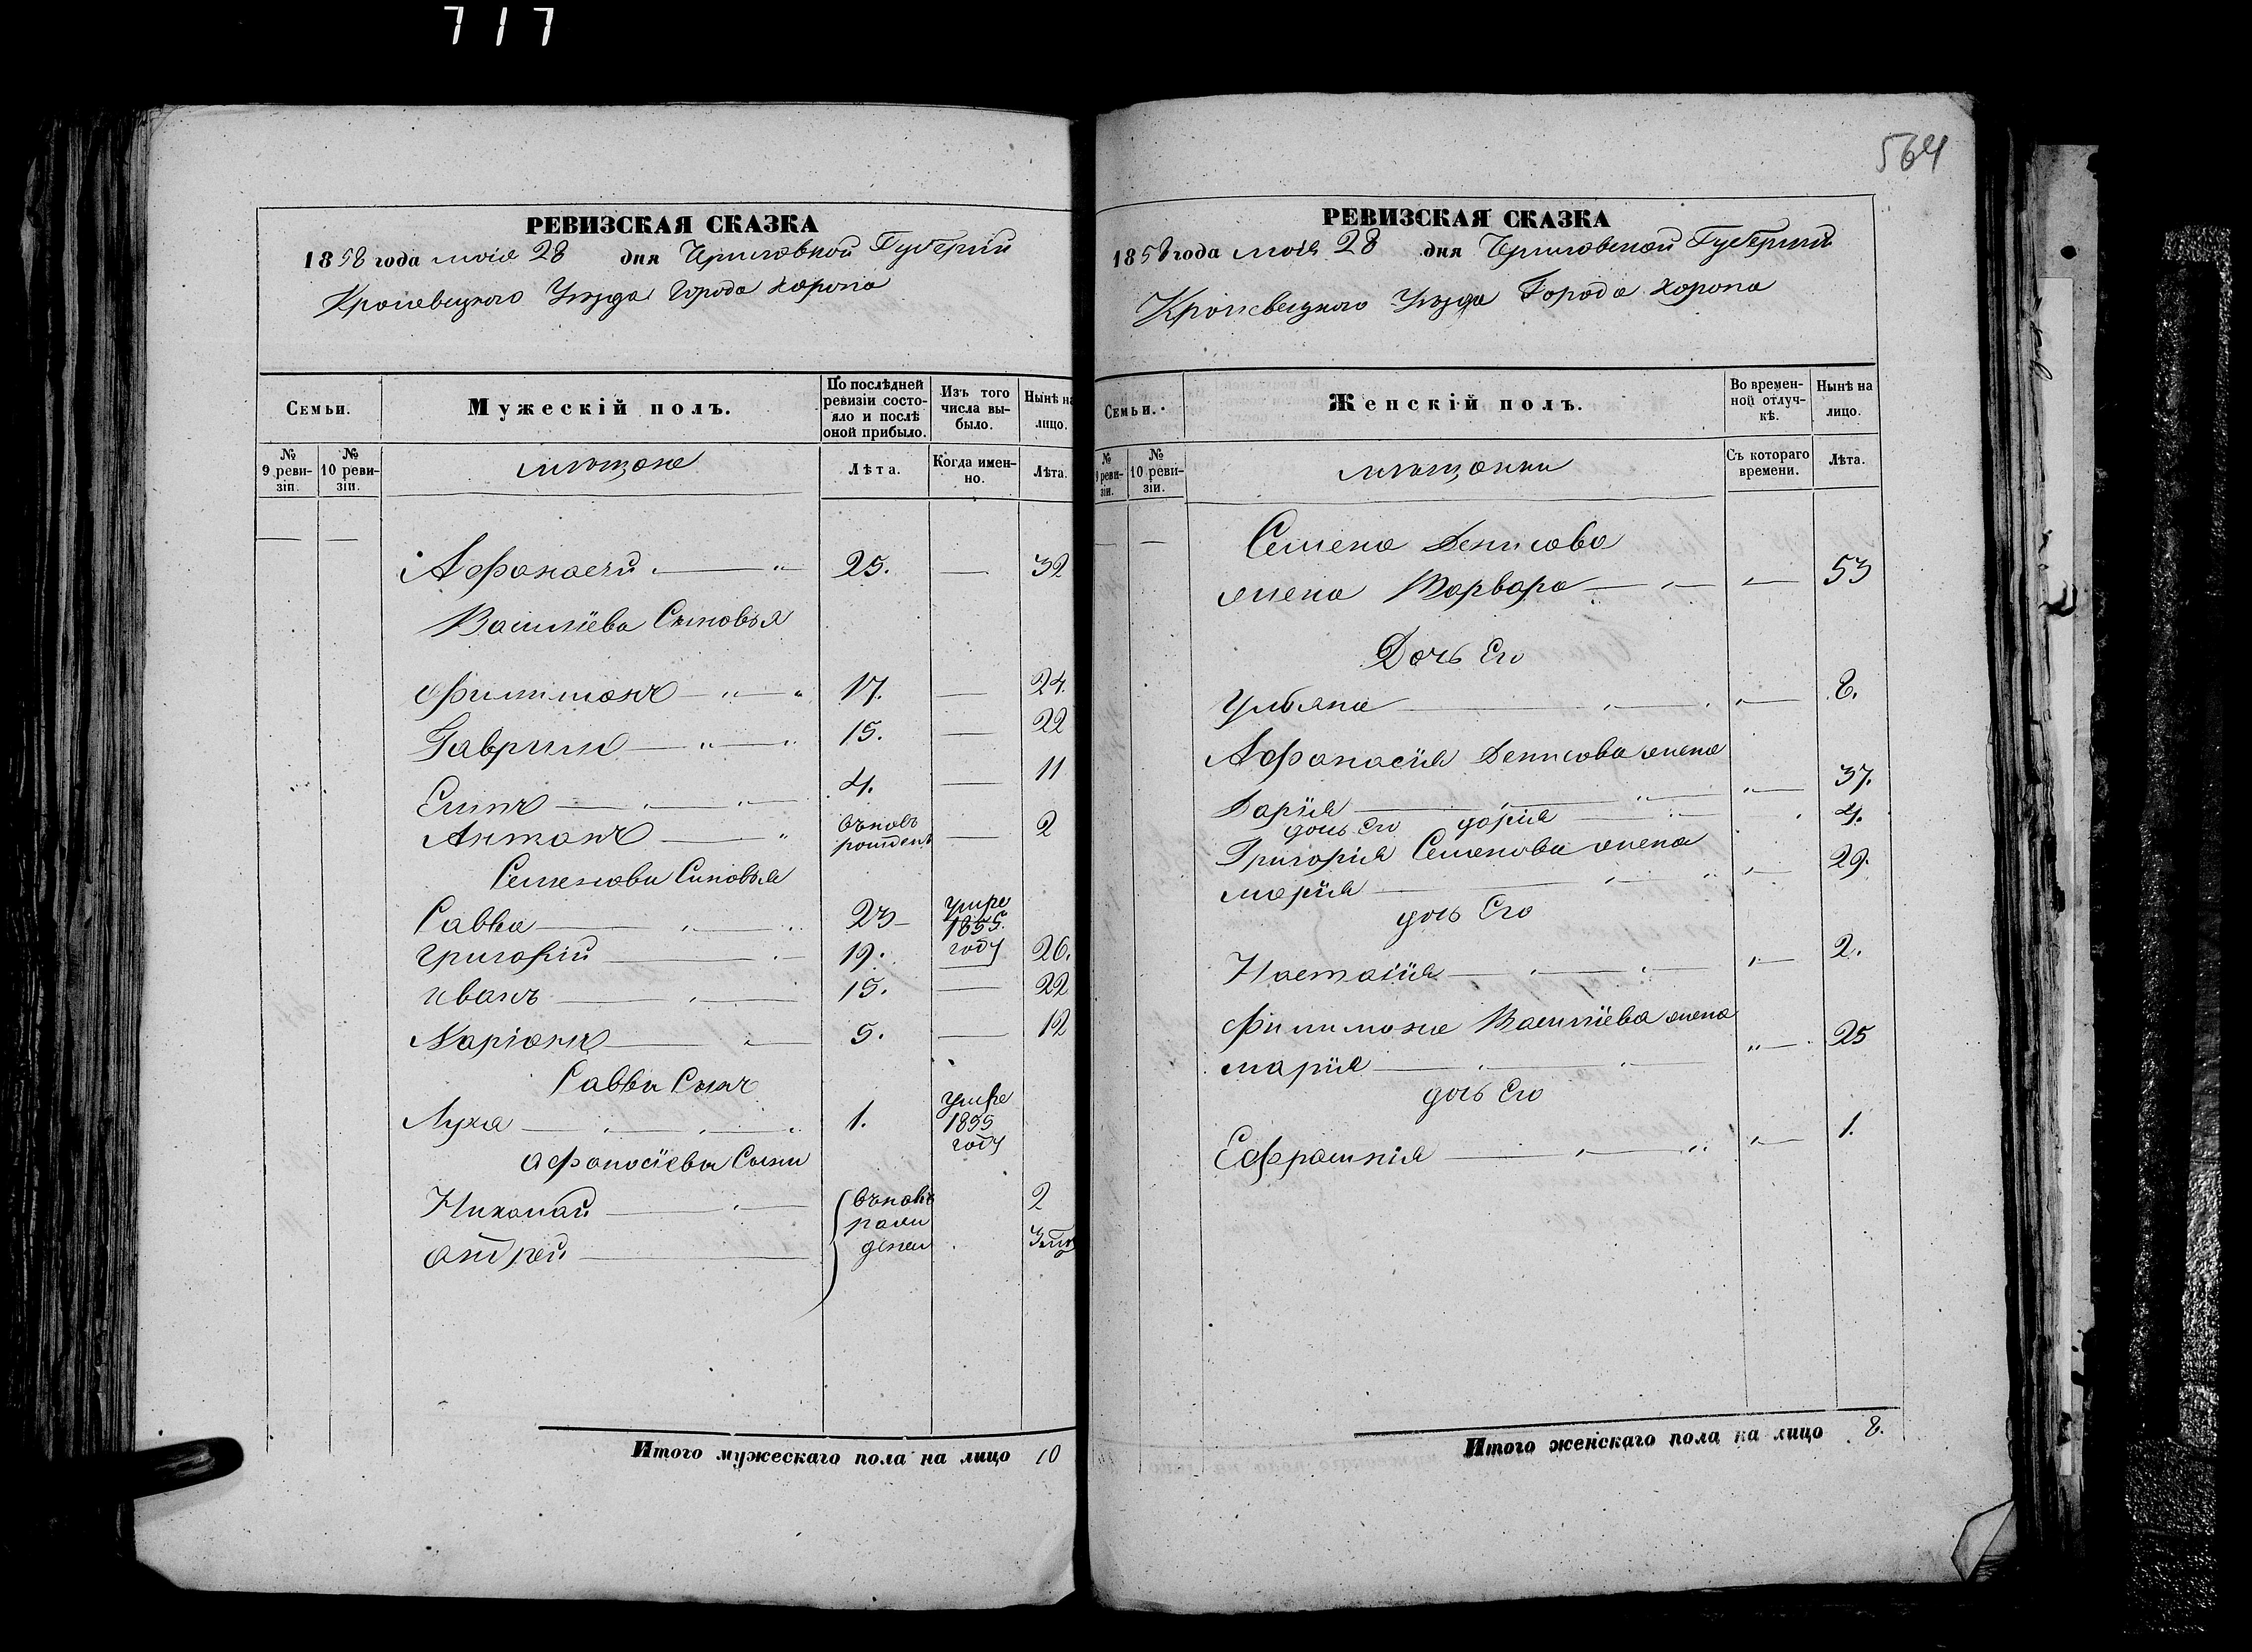 717
564
РЕВИЗСКАЯ СКАЗКА
1858 года маія 28 дня Черниговской Губерніи
Кролевецкого Уезда Города Коропа
Семьи.
Мужескій полъ.
По послѣдней ревизіи состояло и послѣ оной прибыло.
Изъ того числа выбыло.
Нынѣ на лицо.
№ 9 ревизіи.
№ 10 ревизіи.
мѣщане
Лѣта.
Когда именно.
Лѣта.
Афанасий 25. — 32
Василіева Сыновья
Филимонъ 17. — 24.
Гавриил 15. — 22
4. — 11
Антонъ въновь рожденъ — 2
Семенова Синовья
Савва 23 умре 1855 году
Григорій 19. — 26.
Иванъ 15. — 22
Маріянъ 5. — 12
Саввы Сынъ
Лука 1. умре 1855 году
Афанасіева Сыны
Николай въновь рожденъ 2
Андрей
Итого мужескаго пола на лицо 10
РЕВИЗСКАЯ СКАЗКА
1858 года маія 28 дня Черниговской Губерніи
Кролевецкого Уезда Города Коропа
Семьи.
Женскій полъ.
Во временной отлучкѣ.
Нынѣ на лицо.
№ 9 ревизіи.
№ 10 ревизіи.
мѣщанки
Съ котораго времени.
Лѣта.
Семена Денисова
жена Варвара 53
Дочь Его
Ульяна 8.
Афанасія Денисова жена
Дарія 37.
дочь Его Марія 4.
Григорія Семенова жена
Марія 29.
дочь Его
Настасія 2.
Филимона Василіева жена
Марія 25
дочь Его
Ефрасинія 1.
Итого женскаго пола на лицо 8.